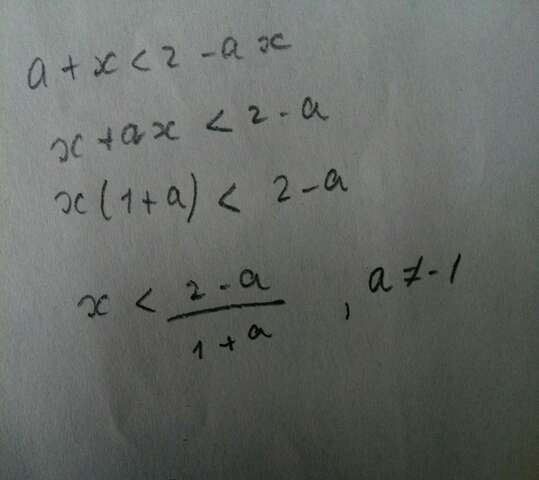 a + x < 2 - a x
x + a x < 2 - a
x (1 + a) < 2 - a
x < \frac{2 - a}{1 + a} , a ≠ -1